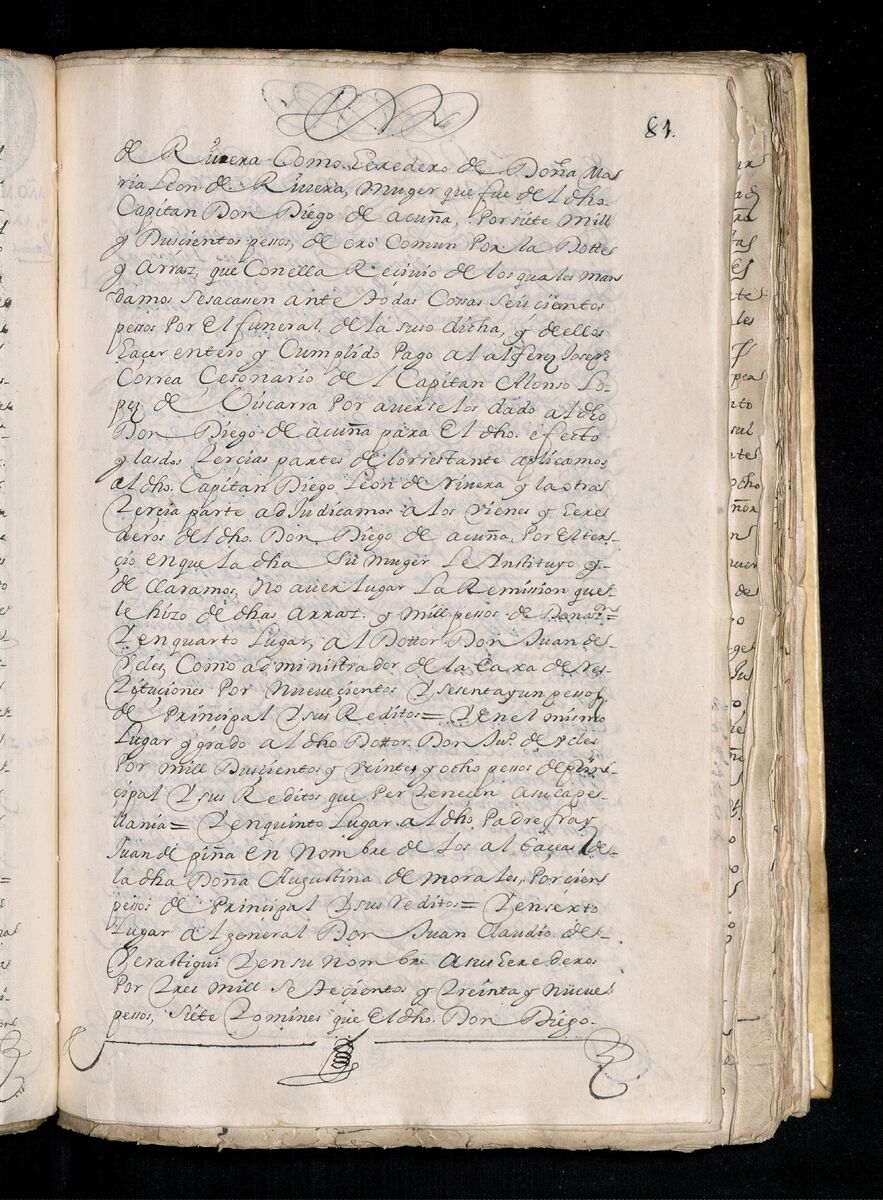 81.
de Riuera Como Eeredero de Doña Ma=
ria Leon de Riuera, muger que fue del dho.
Capitan Don Diego de acuña, Por siete mill
y Duscientos pessos, de oro Comun Por la Dotte
y Arras, que Conella Reciuio de los quales man
damos sesacassen ante todas Cossas seis cientos
pessos Por El funeral de la suso dicha, y de ellos
Eaçer entero y Cumplido Pago al alferez Joseph
Correa Cesonario del Capitan Alonso Lo-
pez de Viscarra Por auerselos dado al dho
Don Diego de acuña para El dho. efecto
y lasdos tercias partes de lorrestante aplicamos
al dho. Capitan Diego Leon de Riuera y la otra
tercia parte adjudicamos a los vienes y Eere
deros del dho. Don Diego de acuña, Por El ter-
cio en que la dha su muger le Instituyo y-
de Claramos, No auer lugar La Remission que
le hizo de dhas Arras. y mill pessos de Donaz.on=
Y en quarto Lugar, al Dottor Don Juan de-
Vcles, Como administrador de la Caxa de res-
tituciones Por Nueueçientos Y sesentayun pessos
de Principal Y sus Reditos= Y en el mismo
Lugar y grado al dho Dottor. Don Ju.o de Vcles
Por mill Duscientos y veinte y otho pessos de prin-
cipal Y sus Reditos que Pertenecen a su cape-
llania= Y en quinto Lugar al dho. Padre fray
Juan de piña en Nombre de Los albaçeas de-
la dha Doña Augustina de morales, Por cien
pessos de Principal Y sus reditos= Y en sexto
Lugar al general Don Juan Claudio de-
Verastigui Y en su nombre a sus Eerederos
Por tres mill setecientos y treinta y nueue
pessos, siete tomines que El dho. Don Diego-